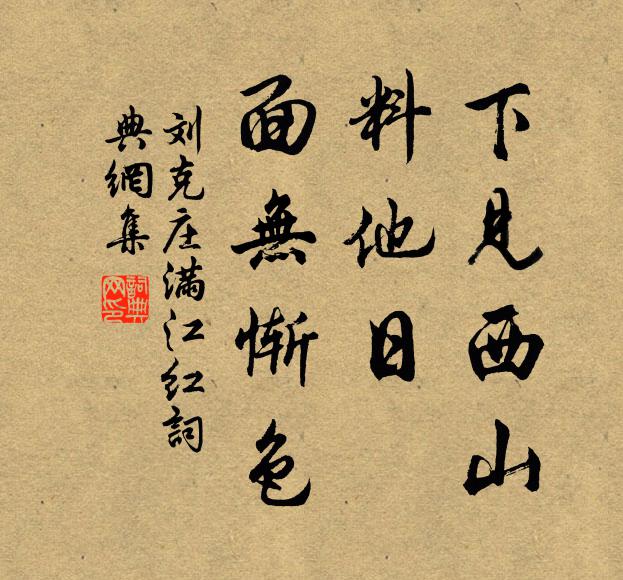 下見西山
料他日
面無慚色
刘克庄满江红詞
典網集
詞典
网印